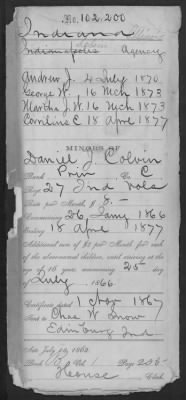 No. 102,200
Indiana
Indianapolis Agency
Andrew J. 4 July 1870.
George W., 16 Mch 1873
Martha J. W. 16 Mch 1873
Cornlius E 18 April 1877
MINORS OF
Daniel J. Colvin
Rank Priv Co. C
Regt. 27 Ind Vols
Rate per Month $ 8.-
Commencing 26 Jany 1866
Ending 18 April 1877
Additional sum of $2 per Month for each
of the abovenamed children until arriving at the
age of 16 years, commencing 25 day
of July 1866.
Certificate dated 1 Nov 1867
Sent to Chas W. Snow
Edinburg Ind
Act July 14, 1862.
Book Vol. Page 205
House Clerk.